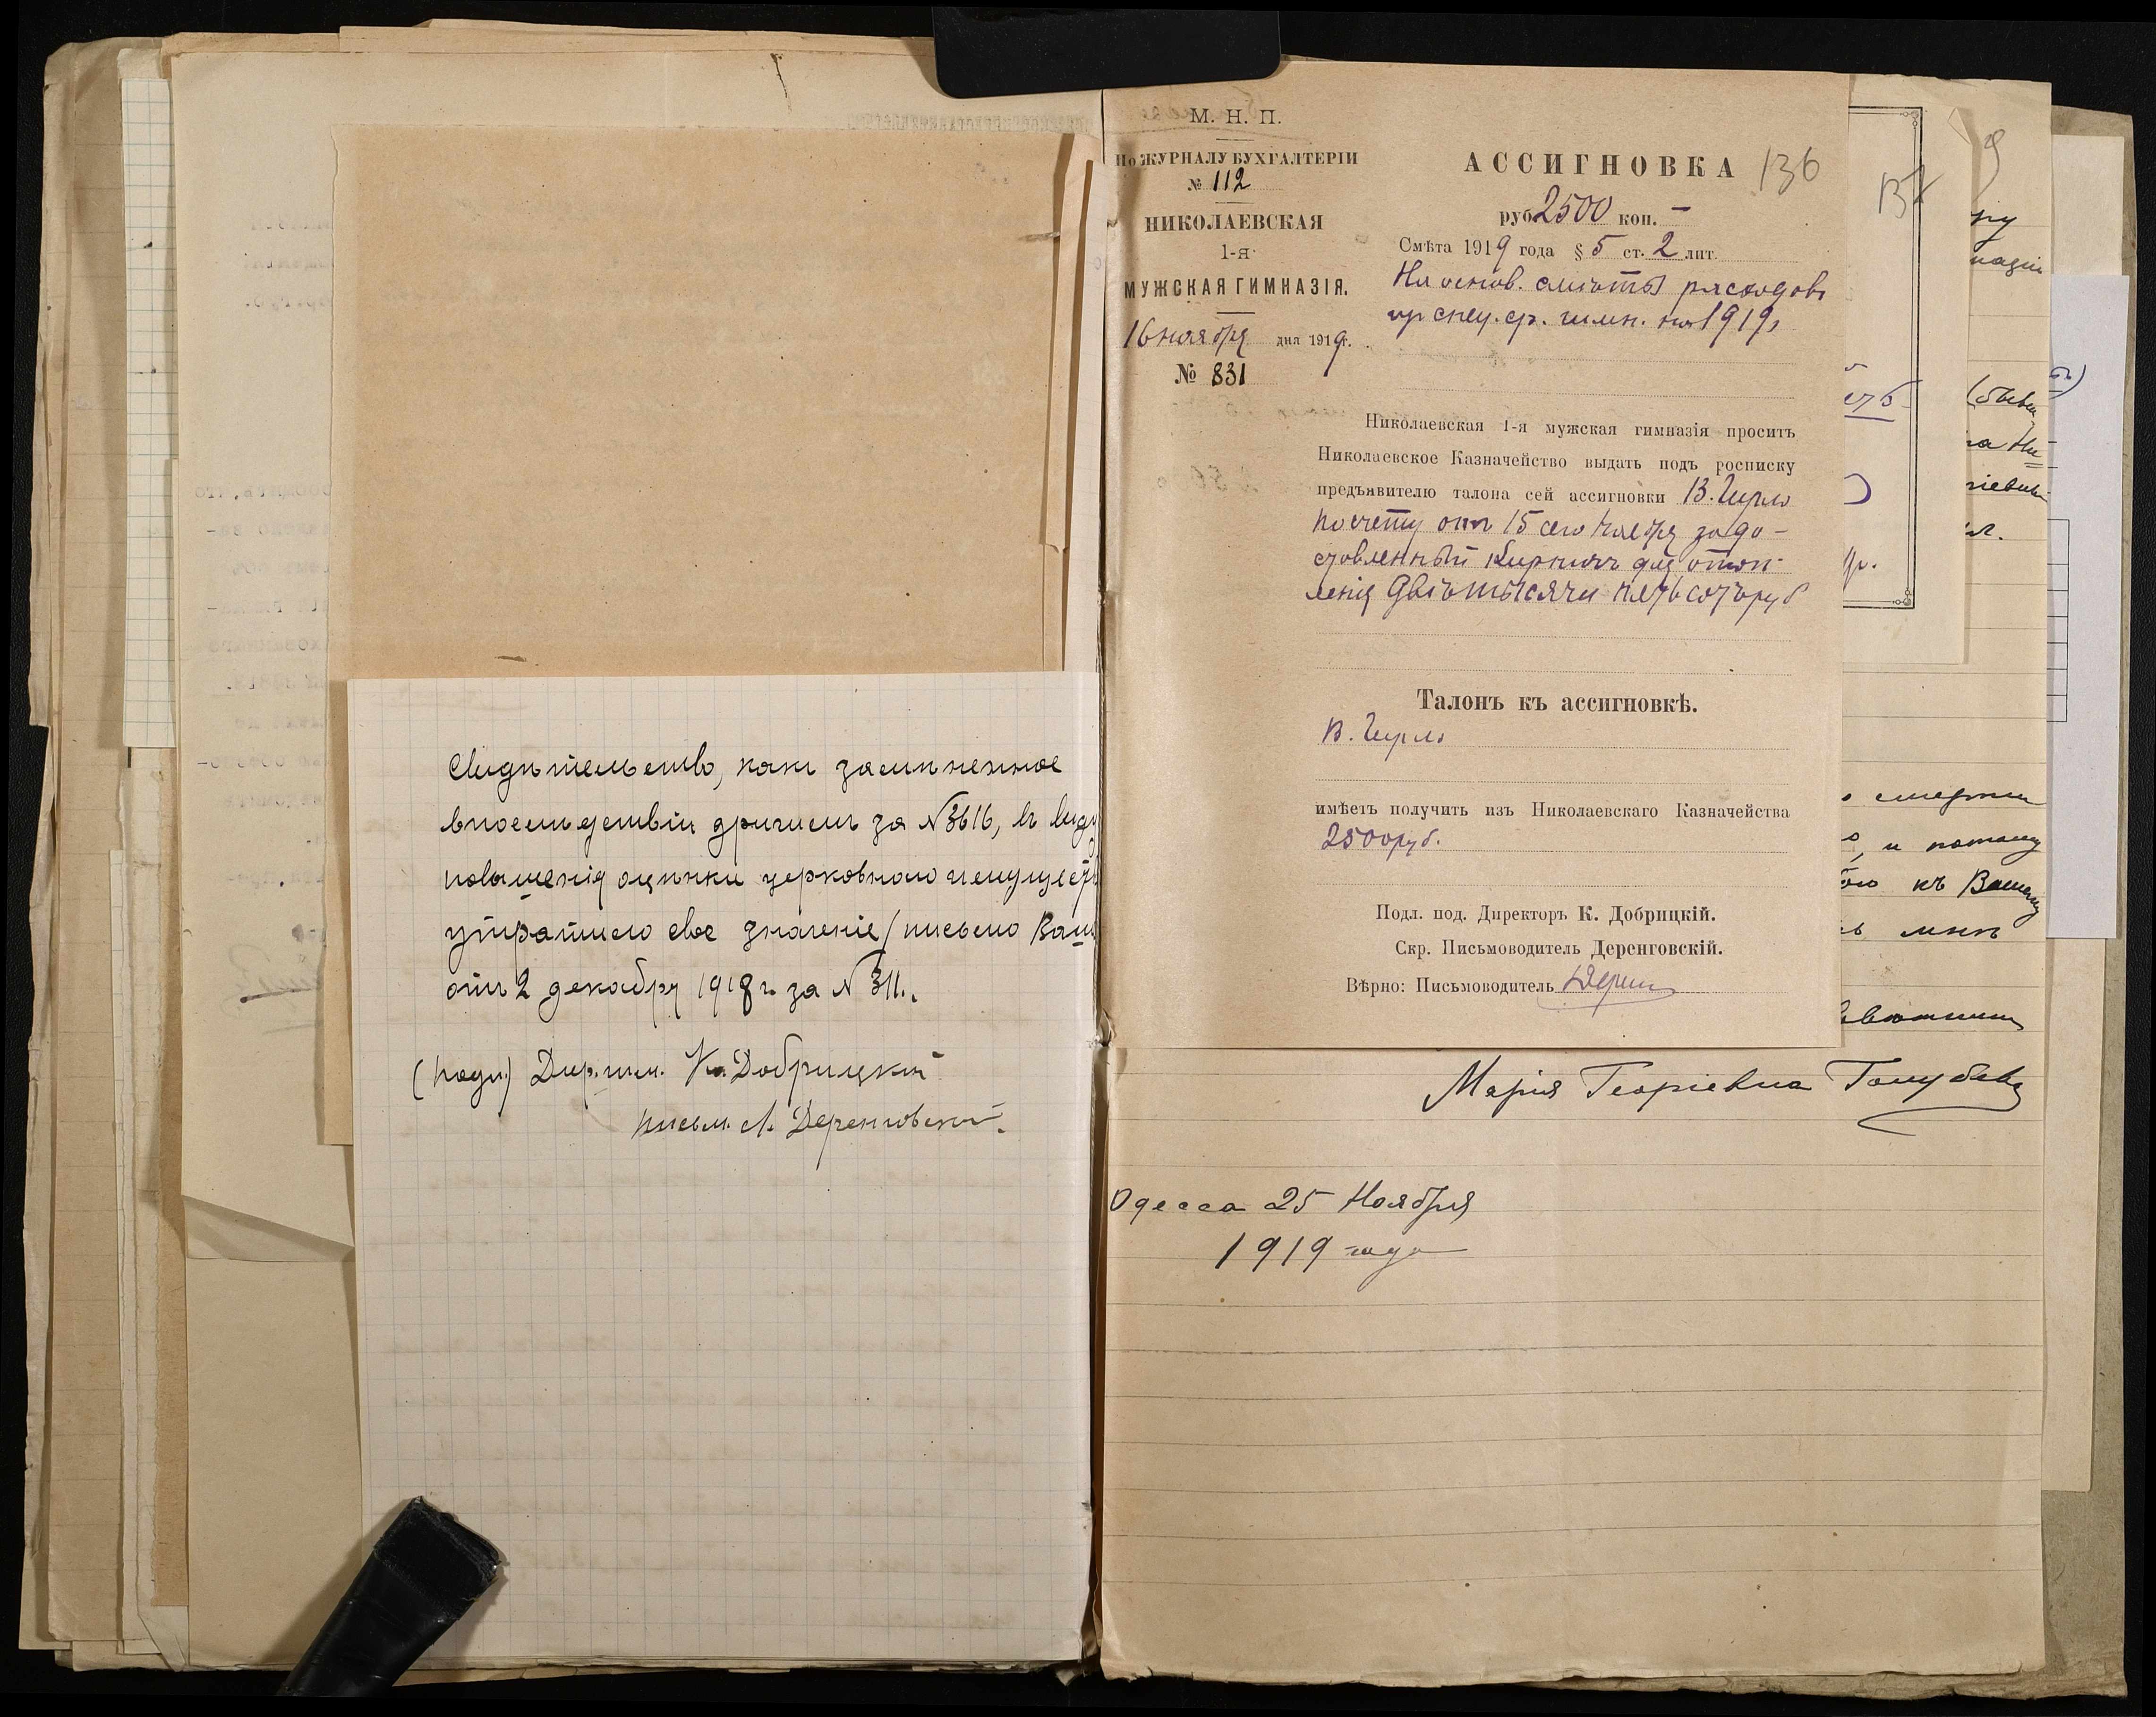 Свидѣтельство, какъ замѣненное
впослѣдствіи другимъ за №3616, въ виду
повышенія оцѣнки церковнаго имущест
утратило свое значеніе (письмо Ваше
отъ 2 декабря 1918 г. за № 311.
(подп.) Дир. гим. К. Добрицкій
письм. А. Деренговскій.
М. Н. П.
По ЖУРНАЛУ БУХГАЛТЕРІИ
№ 112
НИКОЛАЕВСКАЯ
1-я
МУЖСКАЯ ГИМНАЗІЯ.
16 ноября дня 1919г.
№ 831
АССИГНОВКА 136
руб. 2500 коп. —
Смѣта 1919 года § 5 ст. 2 лит.
На основ. смѣты расходовъ
спец. ср. гимн. на 1919 г.
Николаевская 1-я мужская гимназія проситъ
Николаевское Казначейство выдать подъ росписку
предъявителю талона сей ассигновки В. Гирло
по счету отъ 15 сего ноября за до-
ставленный кирпичъ для отоп-
ленія Двѣ тысячи пятьсотъ руб
Талонъ къ ассигновкѣ.
В. Гирло
имѣетъ получить изъ Николаевскаго Казначейства
2500 руб.
Подл. под. Директоръ К. Добрицкій.
Скр. Письмоводитель Деренговскій.
Вѣрно: Письмоводитель
137
смерти
, и потому
къ Вашему
мнѣ
Марія Георгіевна Голубева
Одесса 25 Ноября
1919 года